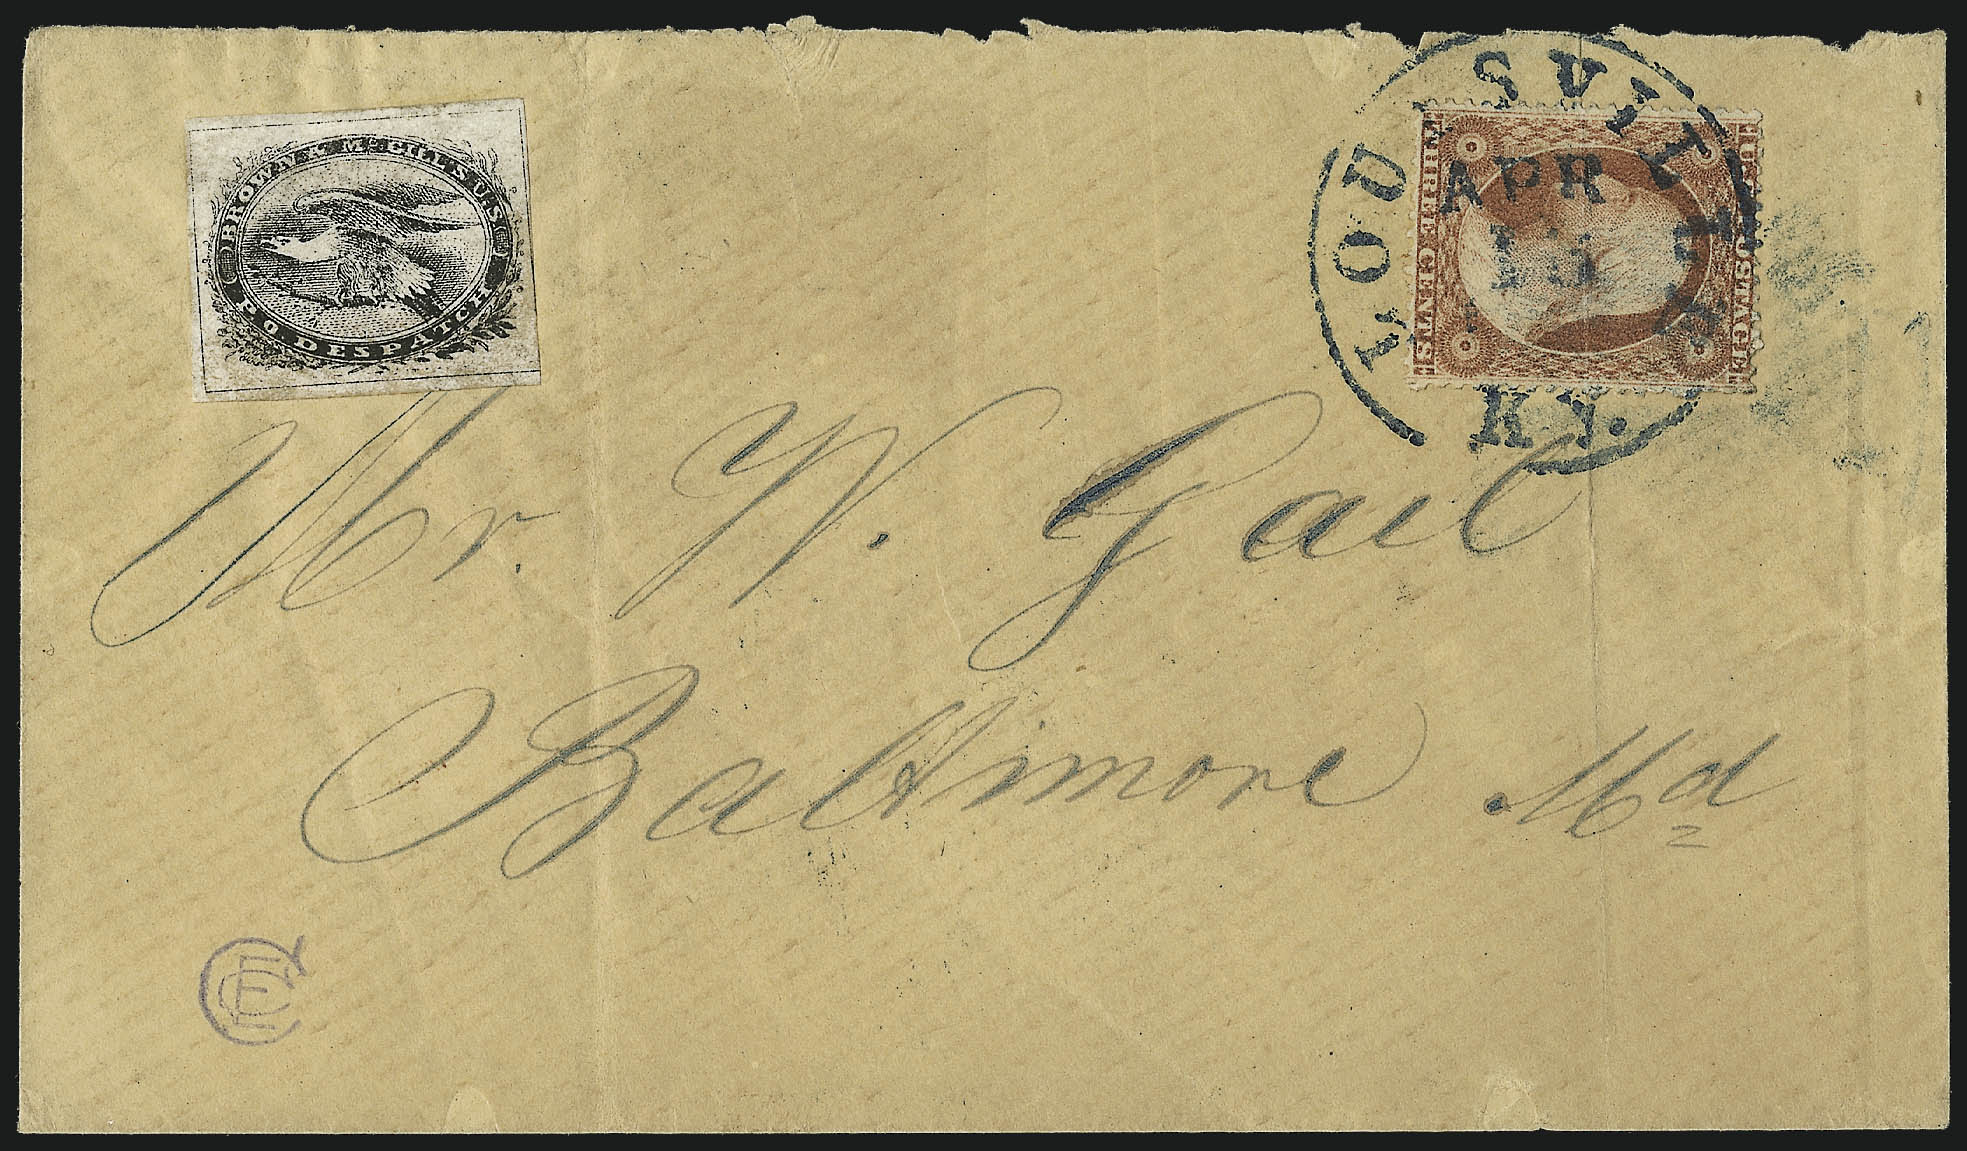 BROWN & McGILL'S U.S.
P.O. DESPATCH
LOUISVILLE
APR
KY.
U.S. POSTAGE
THREE CENTS
Mr. W. Gail
Baltimore Md
CE